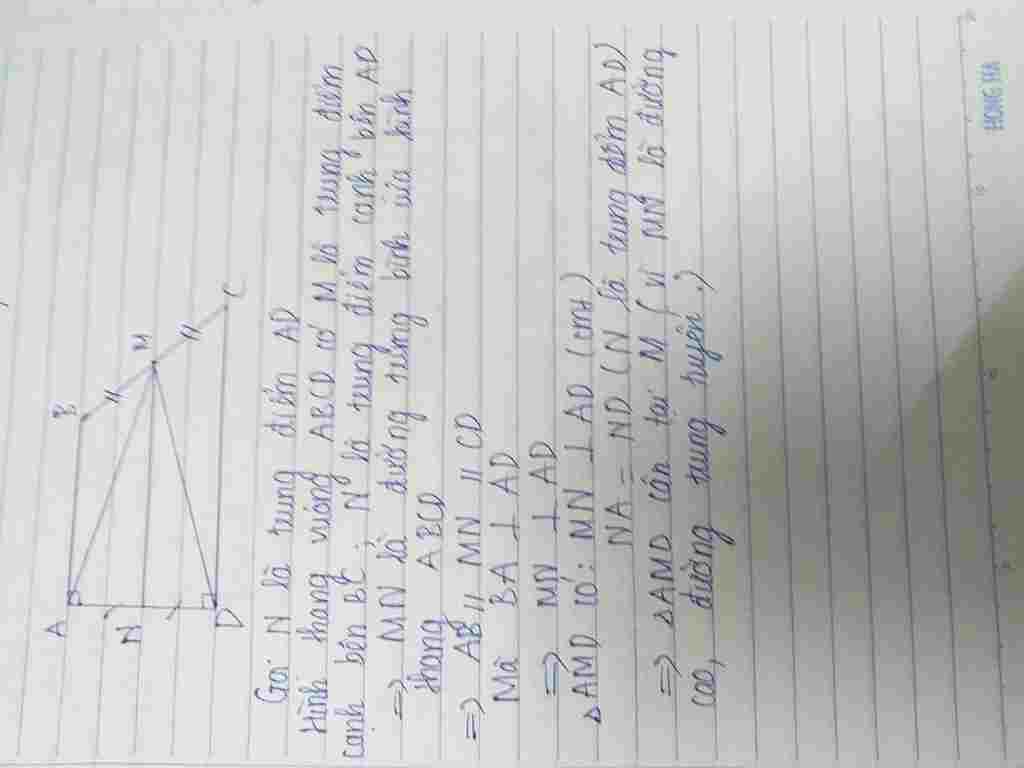 A
B
M
N
D
C
Gọi N là trung điểm AD
Hình thang vuông ABCD có M là trung điểm
cạnh bên BC, N là trung điểm cạnh bên AD
=> MN là đường trung bình của hình
thang ABCD
=> AB // MN // CD
Mà BA ⊥ AD
=> MN ⊥ AD
△AMD có: MN ⊥ AD (cmt)
NA = ND (N là trung điểm AD)
=> △AMD cân tại M (vì MN là đường
cao, đường trung tuyến.)
HONG HA